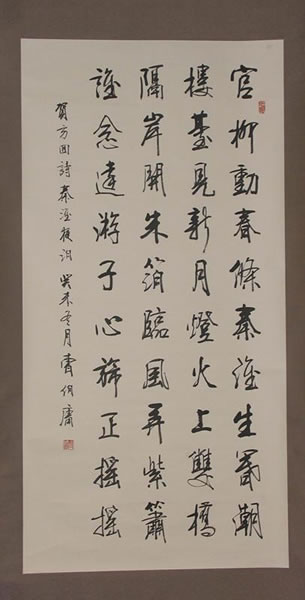 官柳動春條秦淮生暮潮
樓臺見新月燈火上雙橋
隔岸開朱箔臨風弄紫簫
誰念遠游子心旆正搖搖
賀方回詩秦淮夜泊 癸未冬月曹伯庸